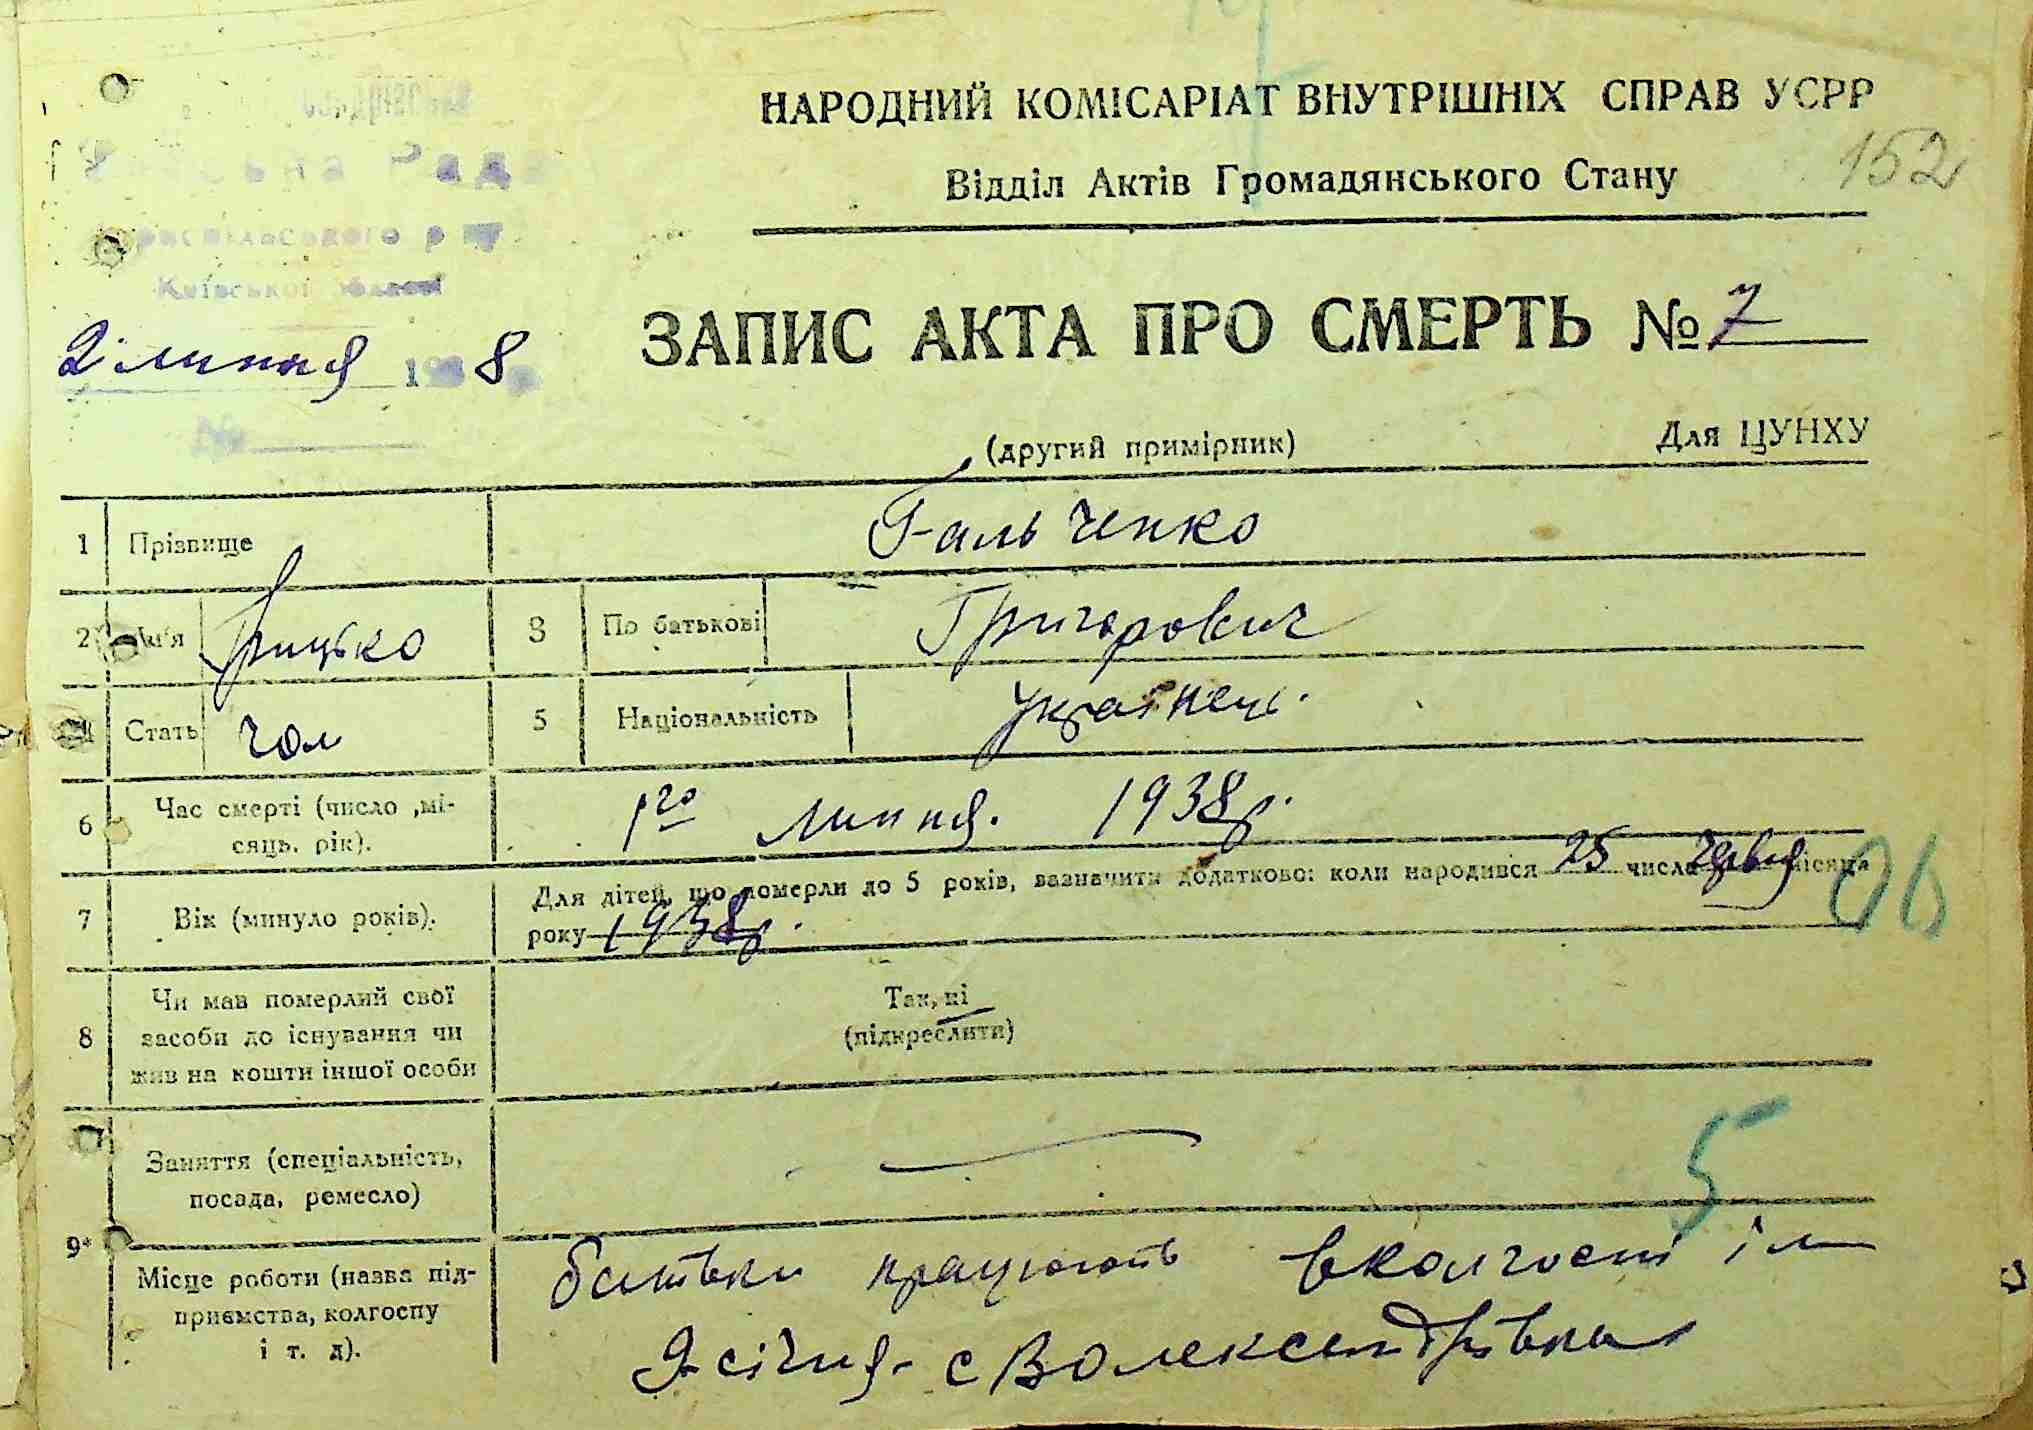 НАРОДНИЙ КОМІСАРІАТ ВНУТРІШНІХ СПРАВ УСРР
152
Відділ Актів Громадянського Стану
Рада
р-ну
Київської області
2 липня 1938
ЗАПИС АКТА ПРО СМЕРТЬ № 7
№
(другий примірник) Для ЦУНХУ
1 Прізвище Гальченко
2 Ім'я Грицько 3 По батькові Григорович
4 Стать чол 5 Національність Українець.
6 Час смерті (число ,мі-
сяць. рік).
1го липня. 1938р.
7 Вік (минуло років).
Для дітей, що померли до 5 років, зазначити додатково: коли народився 25 числа червня місяця
року 1938р.
06
8 Чи мав померлий свої
засоби до існування чи
жив на кошти іншої особи
Так, ні
(підкреслити)
9* Заняття (спеціальність,
посада, ремесло)
5
Місце роботи (назва під-
приємства, колгоспу
і т. д).
батьки працюють вколгоспі ім
9-січня- с Волександрівка